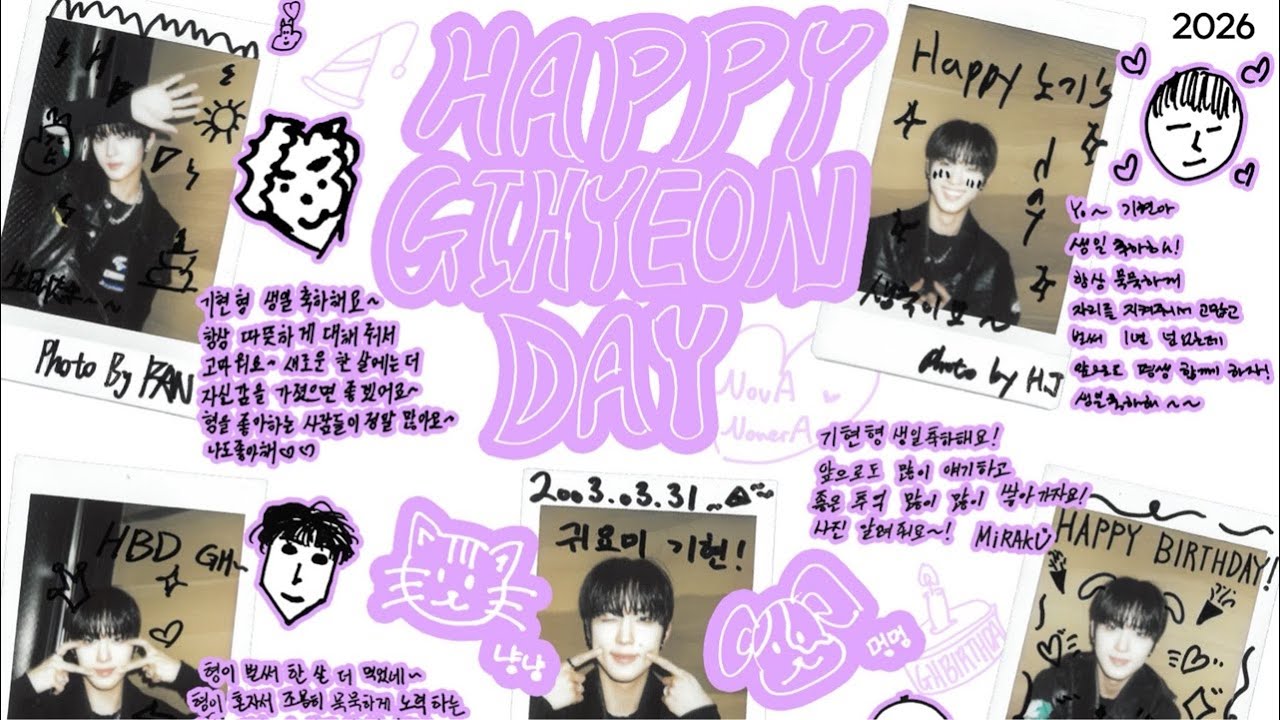 2026
HAPPY
GIHYEON
DAY
Photo By BAN
기현형 생일 축하해요~
항상 따뜻하게 대해 줘서
고마워요~ 새로운 한 살에는 더
자신감을 가졌으면 좋겠어요~
형을 좋아하는 사람들이 정말 많아요~
나도좋아해♡♡
Happy 노기's
day
생축이요~
photo by HJ
Yo~ 기현아
생일 축하해!
항상 묵묵하게
자리를 지켜주어서 고맙고
벌써 1년 넘었는데
앞으로도 평생 함께 하자!
생일축하해~~
NouA
NouerA
기현형 생일축하해요!
앞으로도 많이 얘기하고
좋은 추억 많이 많이 쌓아가자요!
사진 알려줘요~! MiRAKU
HBD GH~
형이 벌써 한 살 더 먹었네~
형이 혼자서 조용히 묵묵하게 노력하는
2003.03.31
귀요미 기현!
냥냥
멍멍
GHBIRTHDAY
HAPPY BIRTHDAY!